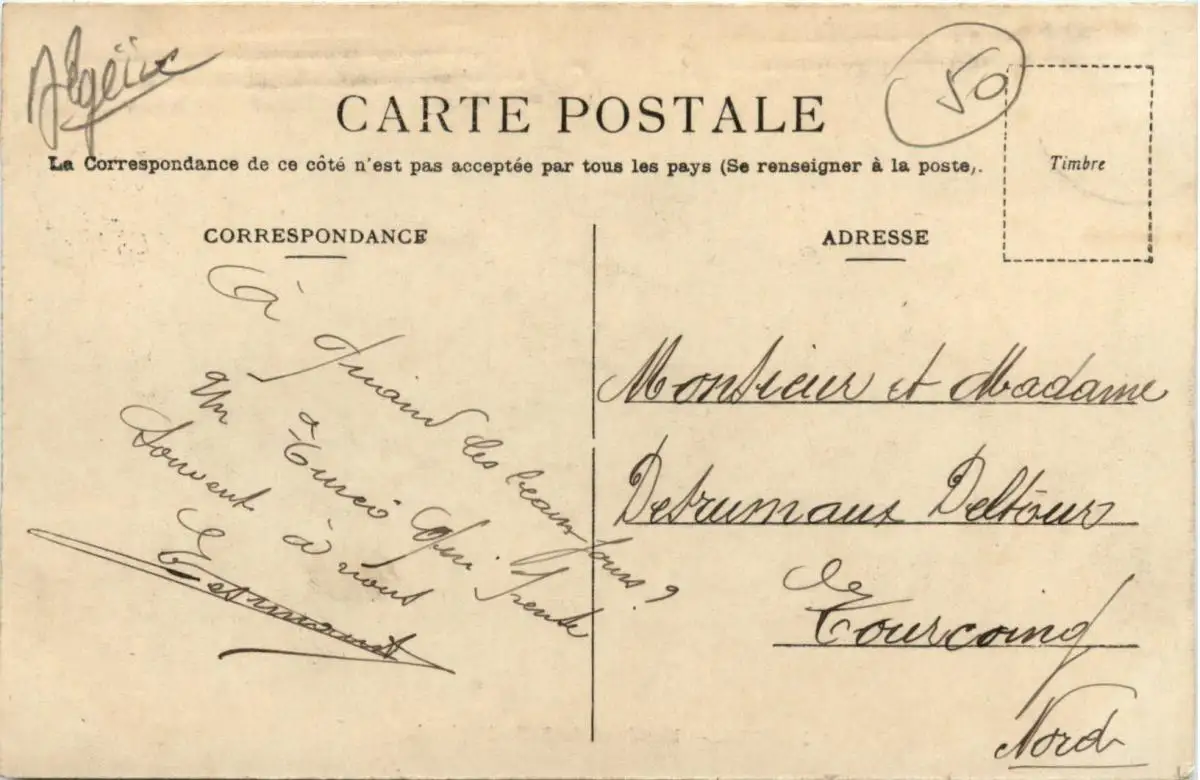 Algérie
50
CARTE POSTALE
La Correspondance de ce côté n'est pas acceptée par tous les pays (Se renseigner à la poste).
Timbre
CORRESPONDANCE
à quand les beaux jours ?
un à qui pense
souvent à vous
ADRESSE
Monsieur et Madame
Destrumaux Deltour
Tourcoing
Nord